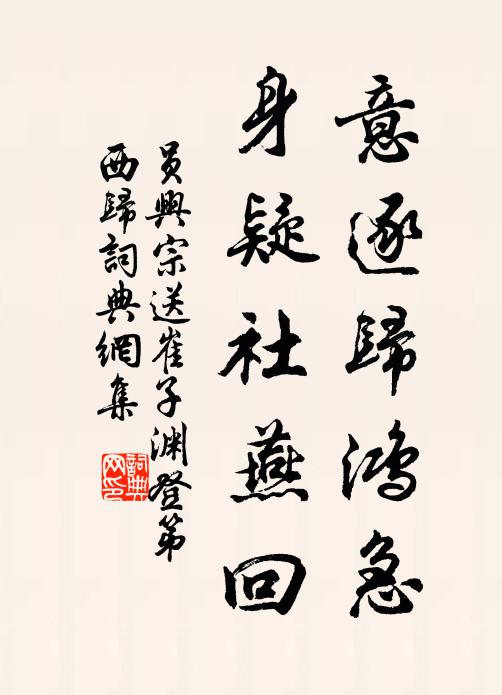 意逐歸鴻急
身疑社燕回
員興宗送崔子淵登第
西歸詞典網集
詞典
网印